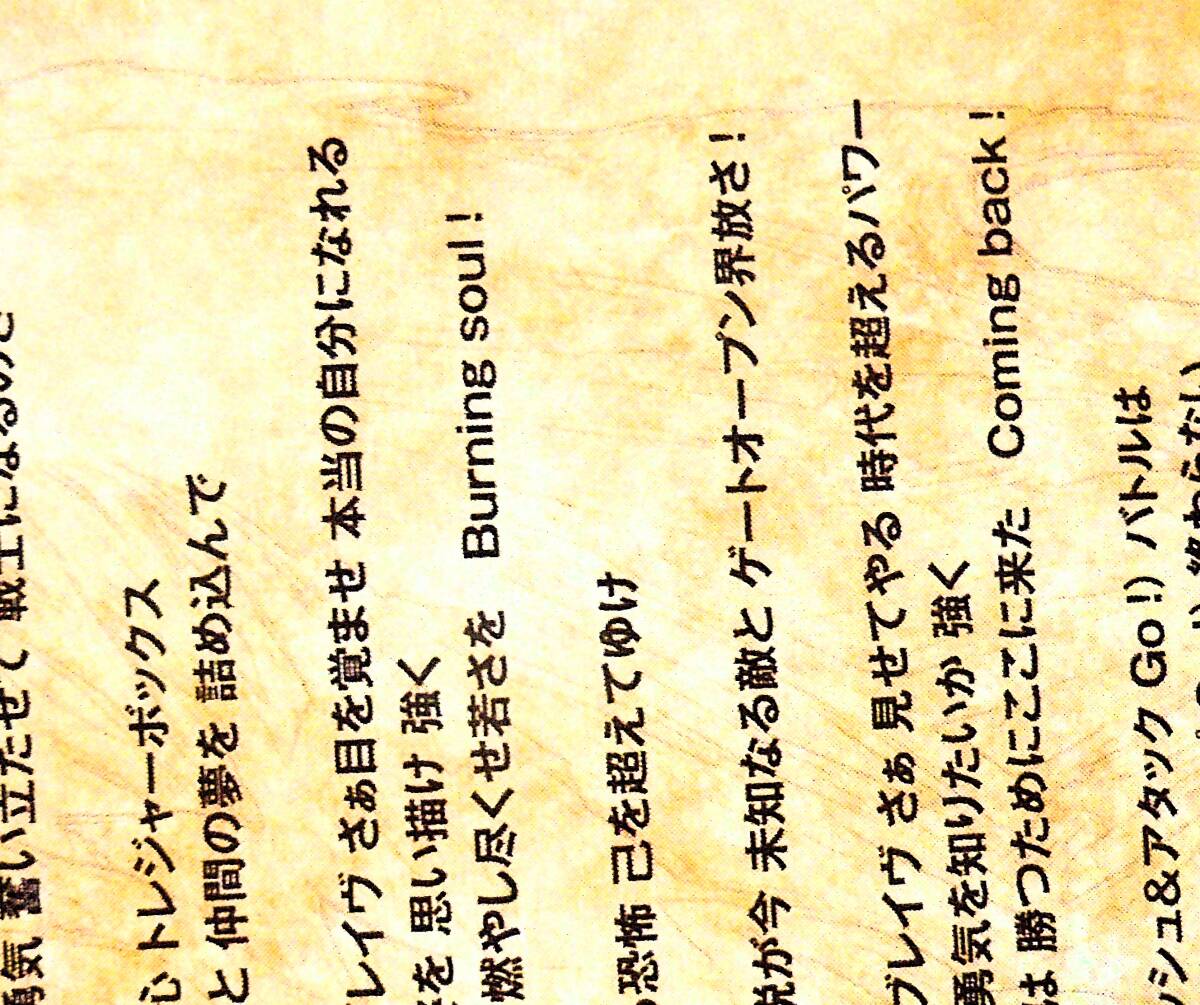 勇気 奮い立たせて 戦士になるのと
心 トレジャーボックス
と 仲間の夢を 詰め込んで
レイヴ さぁ目を覚ませ 本当の自分になれる
を 思い描け 強く
燃やし尽くせ若さを Burning soul!
恐怖 己を超えてゆけ
説が今 未知なる敵と ゲートオープン界放さ!
ブレイヴ さぁ 見せてやる 時代を超えるパワー
勇気を知りたいか 強く
は 勝つためにここに来た Coming back!
ッシュ&アタック Go!) バトルは
終わらない